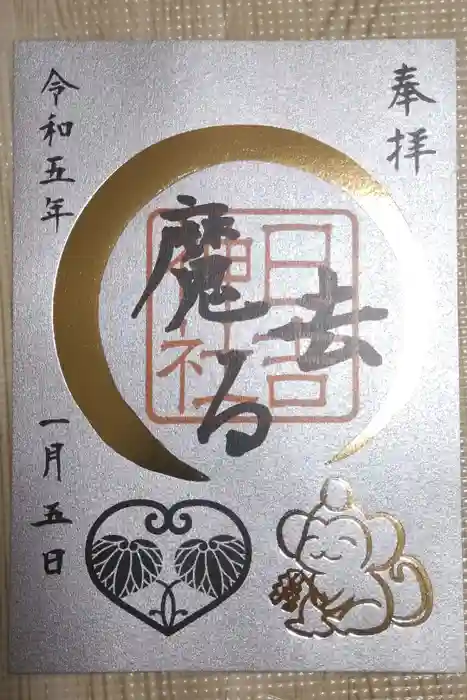 奉拝
日吉
神社
魔
去
る
令和五年
一月五日